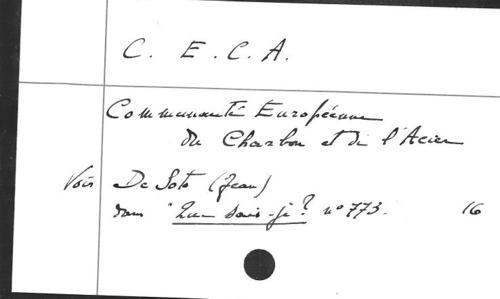 C. E. C. A.
Communauté Européenne
du Charbon et de l'Acier
Voir De Soto (Jean)
dans "Que sais-je? n° 773. 16